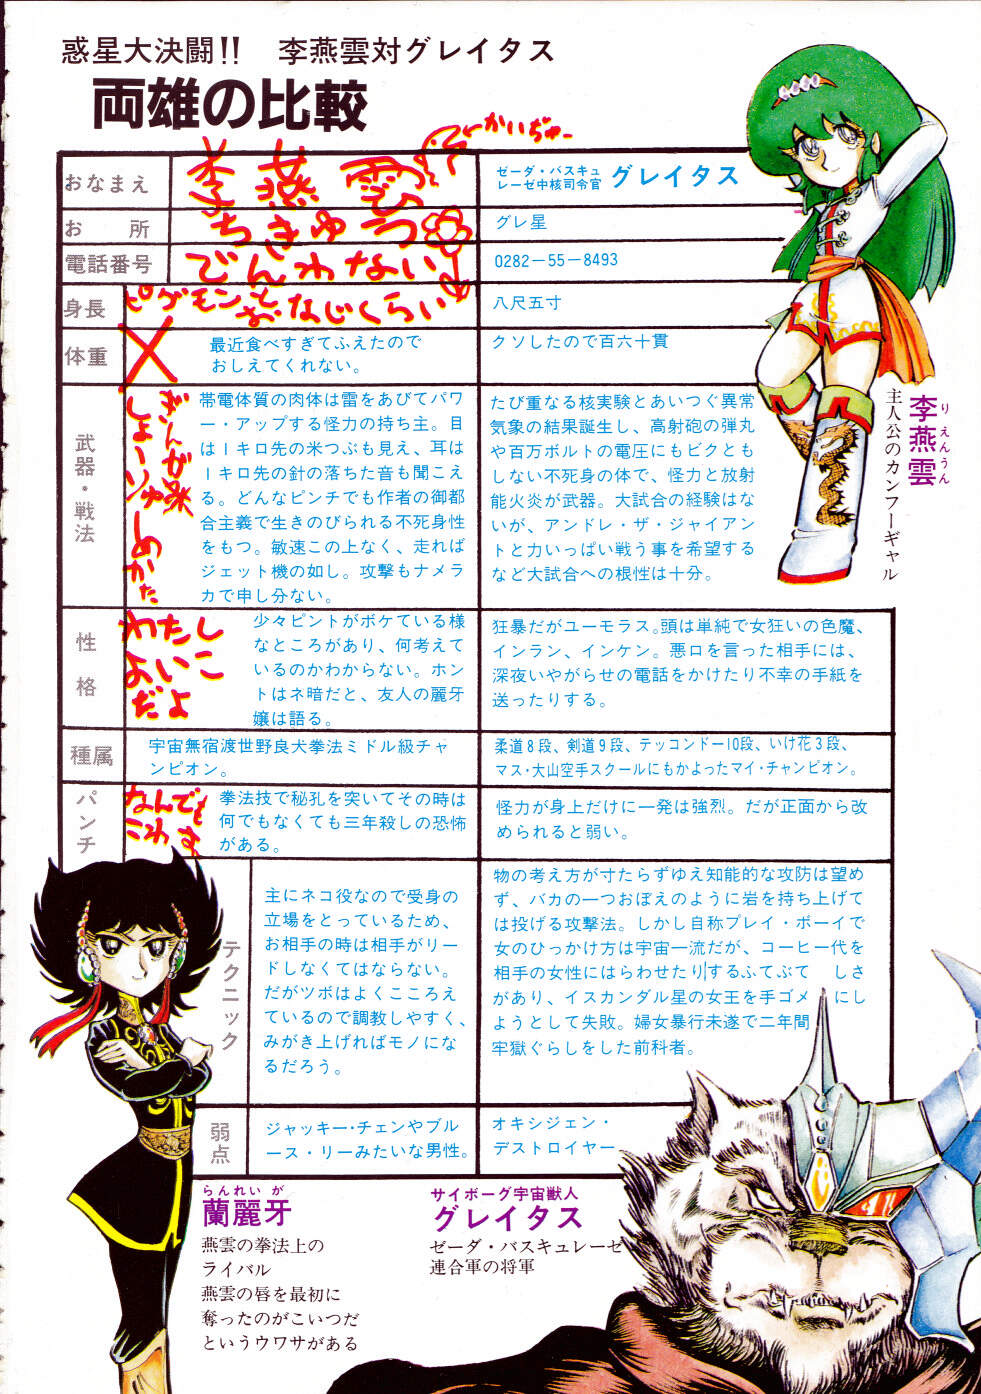 惑星大決闘!! 李燕雲対グレイタス
両雄の比較
かいぢゅー
おなまえ
李燕雲
ゼーダ・バスキュ
レーゼ中核司令官 グレイタス
お所
ちきゅう
グレ星
電話番号
でんわない
0282-55-8493
身長
ピグモンとおなじくらい
八尺五寸
体重
最近食べすぎてふえたので
おしえてくれない。
クソしたので百六十貫
武器・戦法
ぎんが
しょーりゅー
しめかた
帯電体質の肉体は雷をあびてパワ
ー・アップする怪力の持ち主。目
は1キロ先の米つぶも見え、耳は
1キロ先の針の落ちた音も聞こえ
る。どんなピンチでも作者の御都
合主義で生きのびられる不死身性
をもつ。敏速この上なく、走れば
ジェット機の如し。攻撃もナメラ
カで申し分ない。
たび重なる核実験とあいつぐ異常
気象の結果誕生し、高射砲の弾丸
や百万ボルトの電圧にもビクとも
しない不死身の体で、怪力と放射
能火炎が武器。大試合の経験はな
いが、アンドレ・ザ・ジャイアン
トと力いっぱい戦う事を希望する
など大試合への根性は十分。
性格
わたし
よいこ
だよ
少々ピントがボケている様
なところがあり、何考えて
いるのかわからない。ホン
トはネ暗だと、友人の麗牙
嬢は語る。
狂暴だがユーモラス。頭は単純で女狂いの色魔、
インラン、インケン。悪口を言った相手には、
深夜いやがらせの電話をかけたり不幸の手紙を
送ったりする。
種属
宇宙無宿渡世野良犬拳法ミドル級チャ
ンピオン。
柔道8段、剣道9段、テッコンドー10段、いけ花3段、
マス・大山空手スクールにもかよったマイ・チャンピオン。
パンチ
なんでも
こわす
拳法技で秘孔を突いてその時は
何でもなくても三年殺しの恐怖
がある。
怪力が身上だけに一発は強烈。だが正面から改
められると弱い。
テクニック
主にネコ役なので受身の
立場をとっているため、
お相手の時は相手がリー
ドしなくてはならない。
だがツボはよくこころえ
ているので調教しやすく、
みがき上げればモノにな
るだろう。
物の考え方が寸たらずゆえ知能的な攻防は望め
ず、バカの一つおぼえのように岩を持ち上げて
は投げる攻撃法。しかし自称プレイ・ボーイで
女のひっかけ方は宇宙一流だが、コーヒー代を
相手の女性にはらわせたりするふてぶて しさ
があり、イスカンダル星の女王を手ゴメ にし
ようとして失敗。婦女暴行未遂で二年間
牢獄ぐらしをした前科者。
弱点
ジャッキー・チェンやブル
ース・リーみたいな男性。
オキシジェン・
デストロイヤー
李燕雲
りえんうん
主人公のカンフーギャル
らんれいが
蘭麗牙
燕雲の拳法上の
ライバル
燕雲の唇を最初に
奪ったのがこいつだ
というウワサがある
サイボーグ宇宙獣人
グレイタス
ゼーダ・バスキュレーゼ
連合軍の将軍